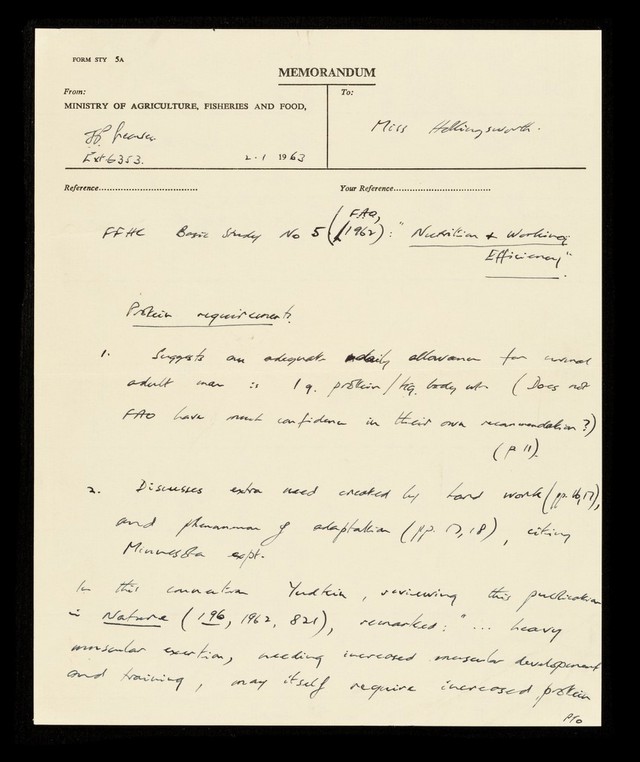 FORM STY 5A
MEMORANDUM
From:
MINISTRY OF AGRICULTURE, FISHERIES AND FOOD,
Ext 6353.
2.1 1963
To:
Miss Hollingsworth.
Reference...................................
Your Reference..................................
FFHC Basic Study No 5 (FAO, 1962): "Nutrition + Working
Efficiency".
Protein requirements.
1. Suggests an adequate daily allowance for normal
adult man is 1 g. protein/kg. body wt. (Does not
FAO have much confidence in their own recommendation?)
(p 11).
2. Discusses extra need created by hard work (pp. 16, 17),
and phenomenon of adaptation (pp. 17, 18), citing
Minnesota expt.
In this connection Yudkin, reviewing this publication
in Nature (196, 1962, 821), remarked: "... heavy
muscular exertion, needing increased muscular development
and training, may itself require increased protein
PTO